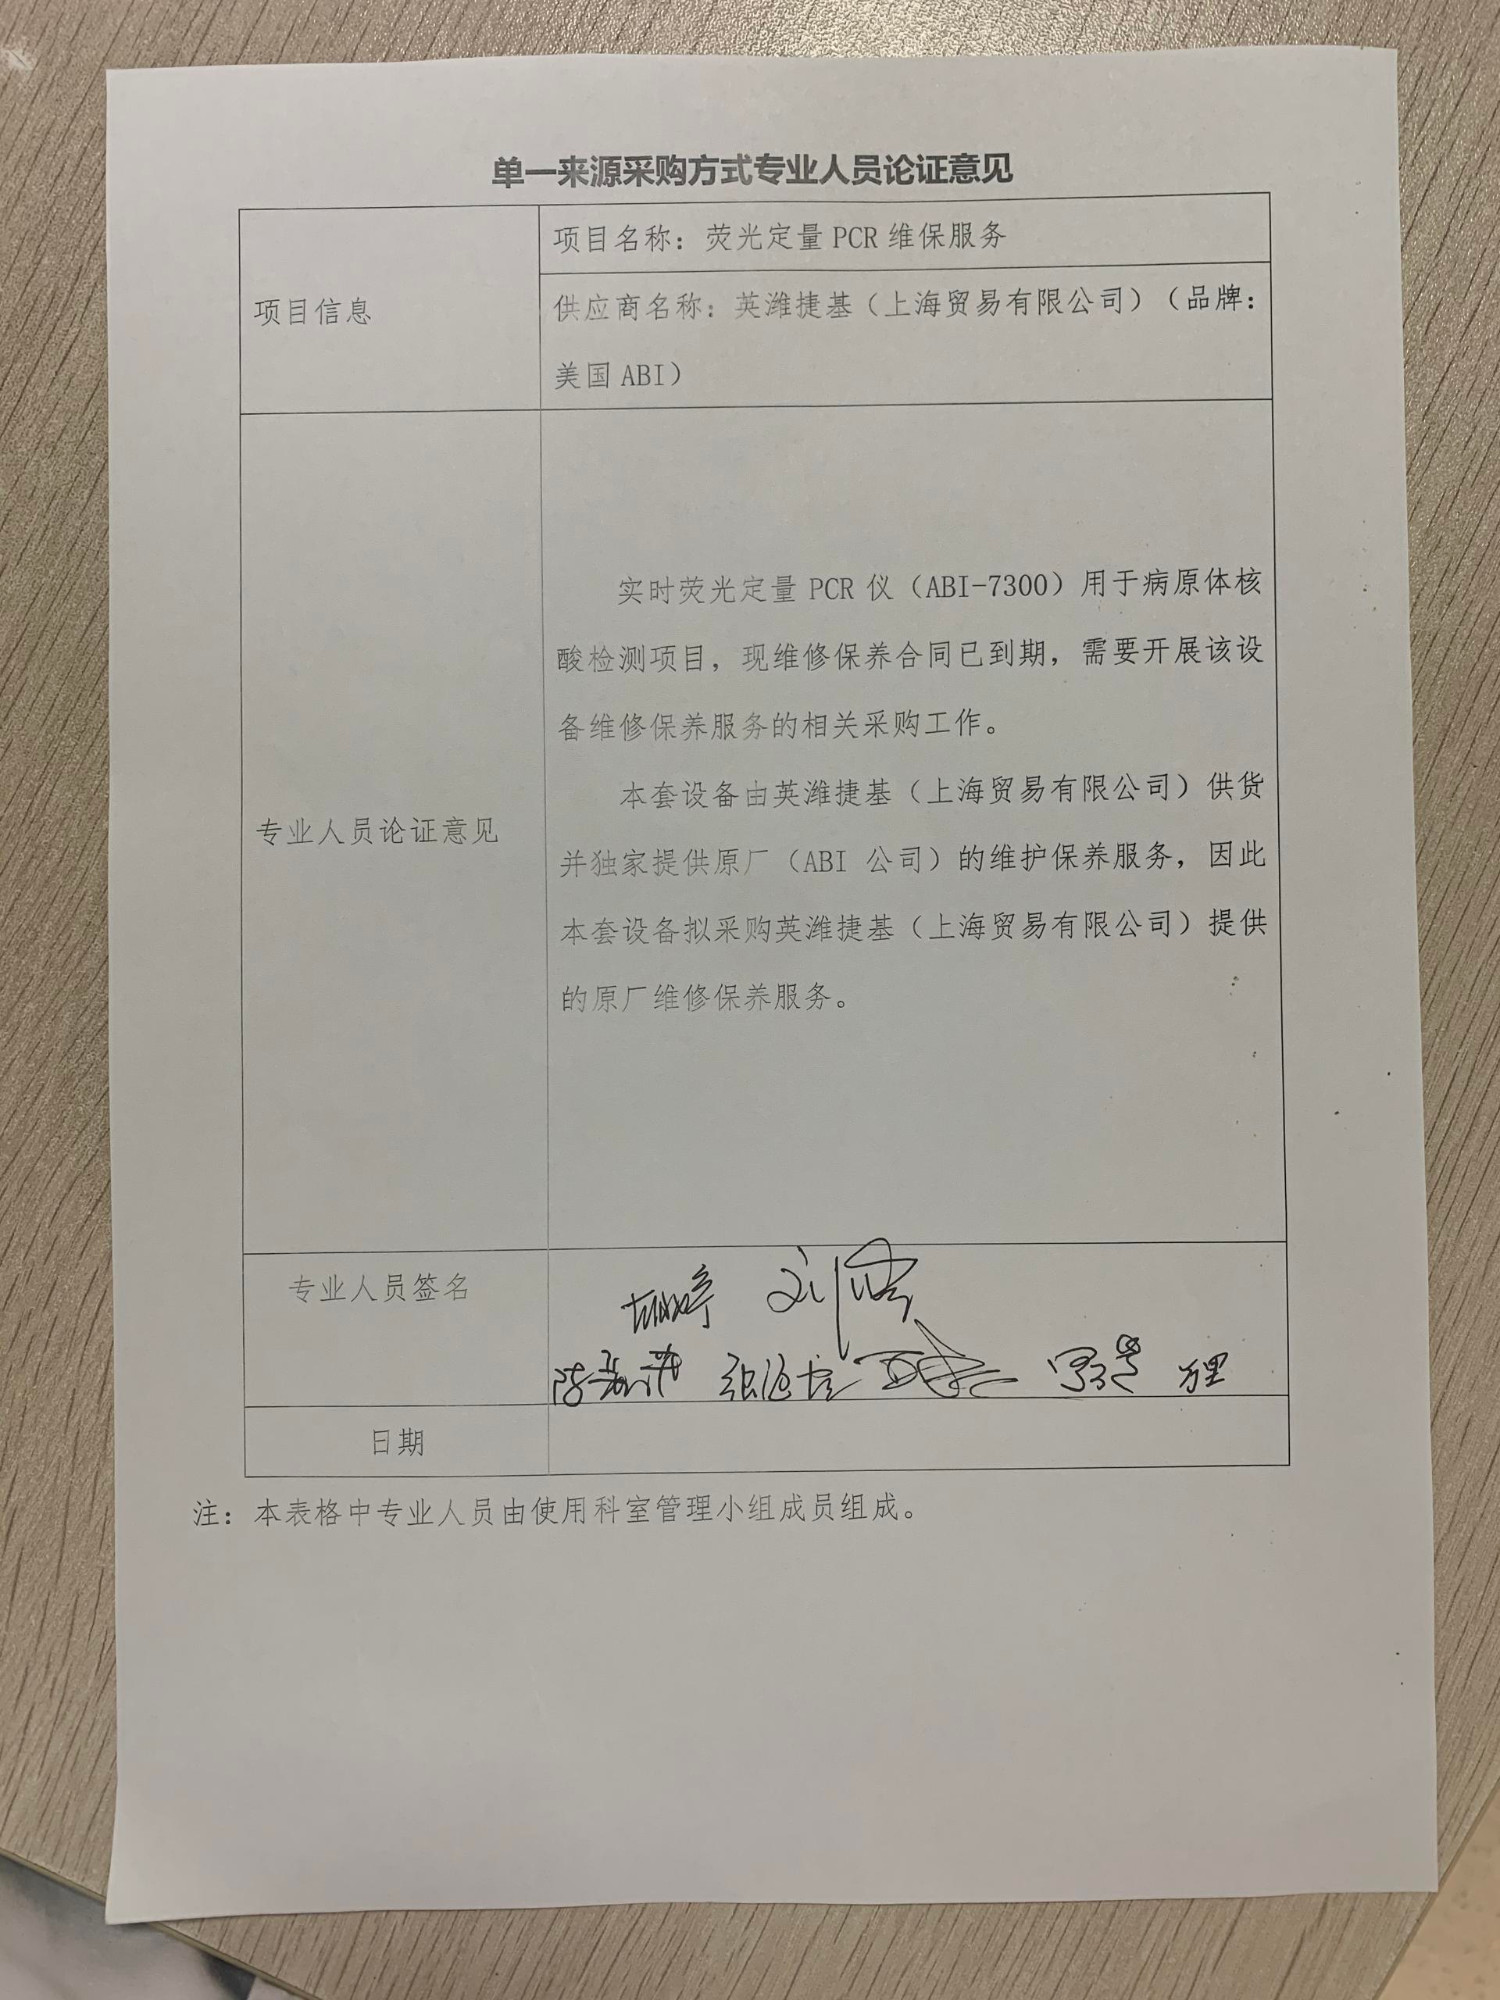 单一来源采购方式专业人员论证意见
项目信息
项目名称：荧光定量 PCR 维保服务
供应商名称：英潍捷基（上海贸易有限公司）（品牌：
美国 ABI）
专业人员论证意见
实时荧光定量 PCR 仪（ABI-7300）用于病原体核
酸检测项目，现维修保养合同已到期，需要开展该设
备维修保养服务的相关采购工作。
本套设备由英潍捷基（上海贸易有限公司）供货
并独家提供原厂（ABI 公司）的维护保养服务，因此
本套设备拟采购英潍捷基（上海贸易有限公司）提供
的原厂维修保养服务。
专业人员签名
万里
日期
注：本表格中专业人员由使用科室管理小组成员组成。